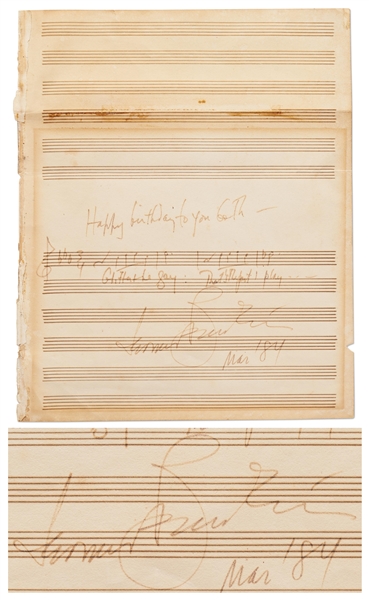 Happy birthday to you both —
Glitter & be Gay - That's the part I play ...
Leonard Bernstein
Mar '84
Leonard Bernstein
Mar '84